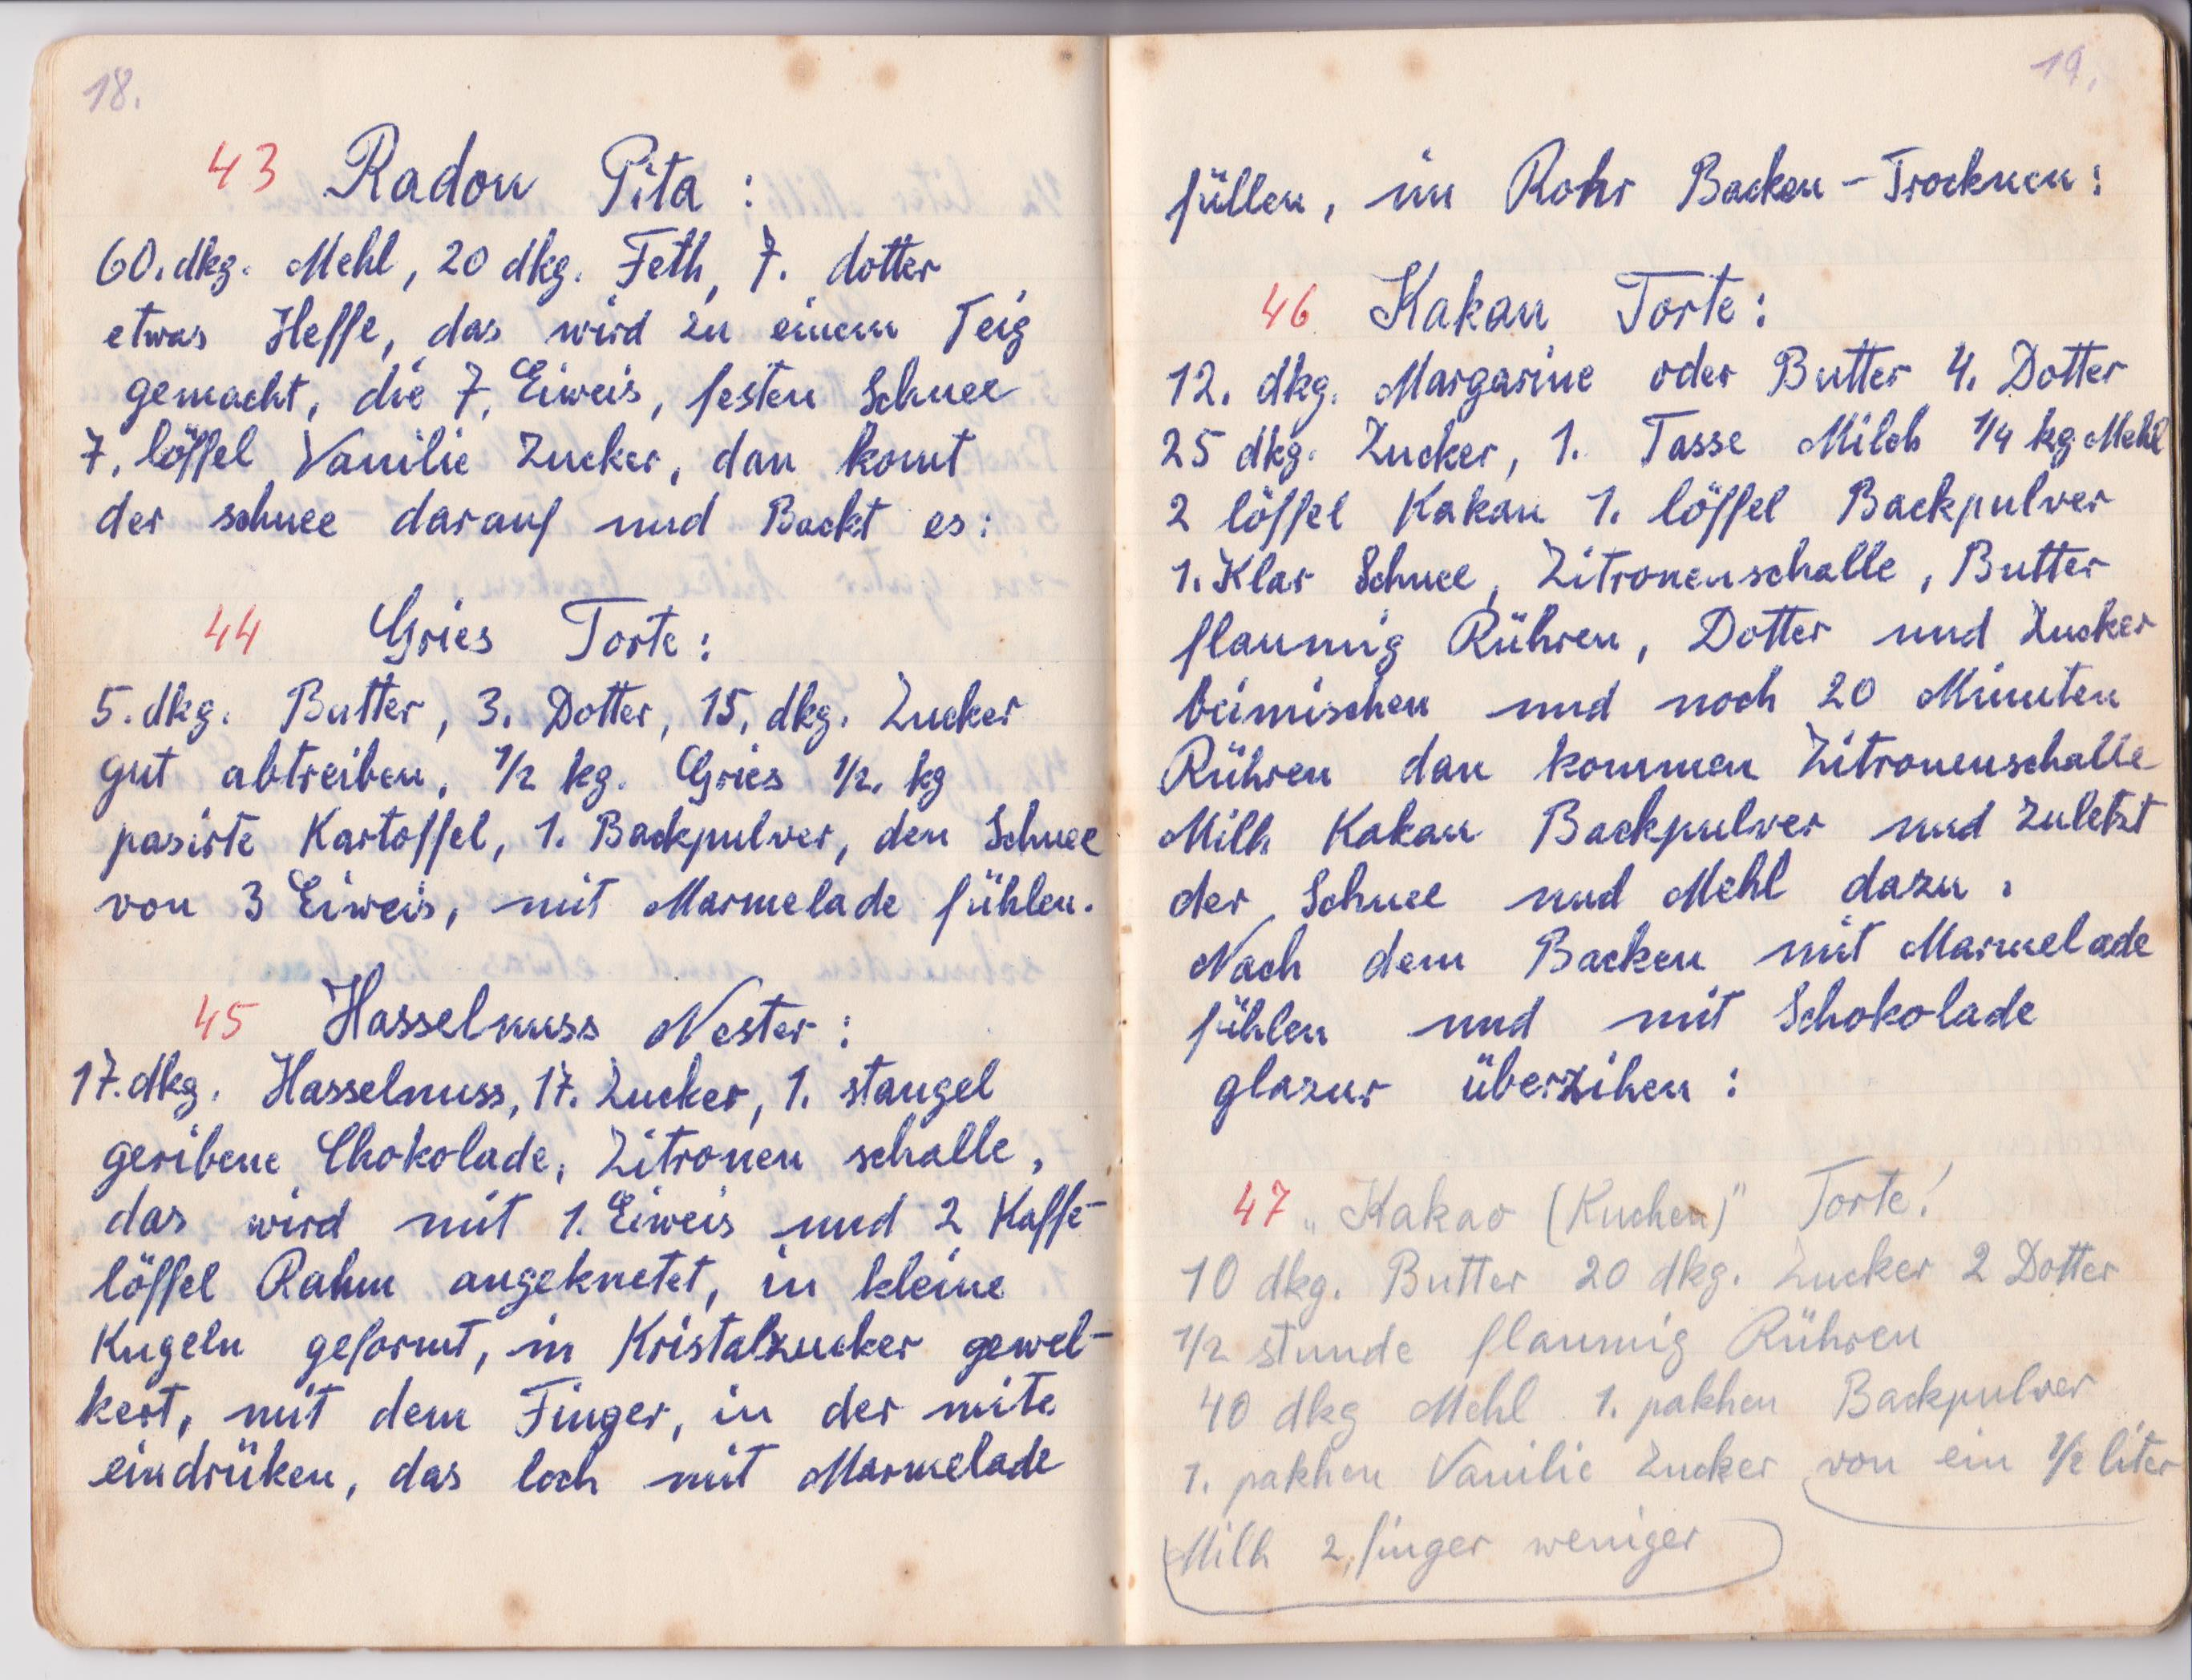 18.
43 Radon Pita :
60. dkg. Mehl, 20 dkg. Feth, 7. dotter
etwas Heffe, das wird zu einem Teig
gemacht, die 7. Eiweis, festen Schnee
7. löffel Vanilie Zucker, dan komt
der schnee darauf und Backt es :
44 Gries Torte :
5. dkg. Butter, 3. Dotter, 15. dkg. Zucker
gut abtreiben, 1/2 kg. Gries 1/2. kg
pasirte Kartoffel, 1. Backpulver, den Schnee
von 3 Eiweis, mit Marmelade fühlen.
45 Hasselnuss Nester :
17. dkg. Hasselnuss, 17. Zucker, 1. stangel
geribene Chokolade, Zitronen schalle,
das wird mit 1. Eiweis und 2 Kaffe-
löffel Rahm angeknetet, in kleine
Kugeln geformt, in Kristalzucker gewel-
kert, mit dem Finger, in der mite
eindrüken, das loch mit Marmelade
19.
füllen, im Rohr Backen - Trocknen :
46 Kakau Torte :
12. dkg. Margarine oder Butter 4. Dotter
25 dkg. Zucker, 1. Tasse Milch 1/4 kg Mehl
2 löffel Kakau 1. löffel Backpulver
1. Klar Schnee, Zitronenschalle, Butter
flaumig Rühren, Dotter und Zucker
beimischen und noch 20 Minuten
Rühren dan kommen Zitronenschalle
Milh Kakau Backpulver und zuletzt
der Schnee und Mehl dazu.
Nach dem Backen mit Marmelade
fühlen und mit Schokolade
glasur überzihen :
47 „Kakao (Kuchen)" Torte!
10 dkg. Butter 20 dkg. Zucker 2 Dotter
1/2 stunde flaumig Rühren
40 dkg Mehl 1. pakhen Backpulver
1. pakhen Vanilie Zucker von ein 1/2 liter
Milh 2 finger weniger